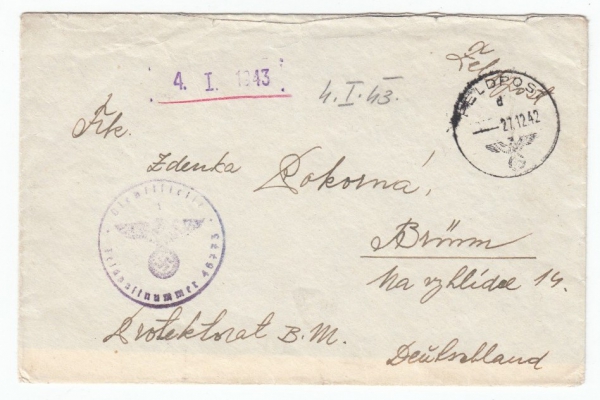 4. I. 1943
4. I. 43.
Feldpost
FELDPOST
d
27.12.42
Frk.
Zdenka Pokorná,
Brünn
Na vyhlídce 14.
Protektorat B. M.
Deutschland
Dienststelle
Feldpostnummer